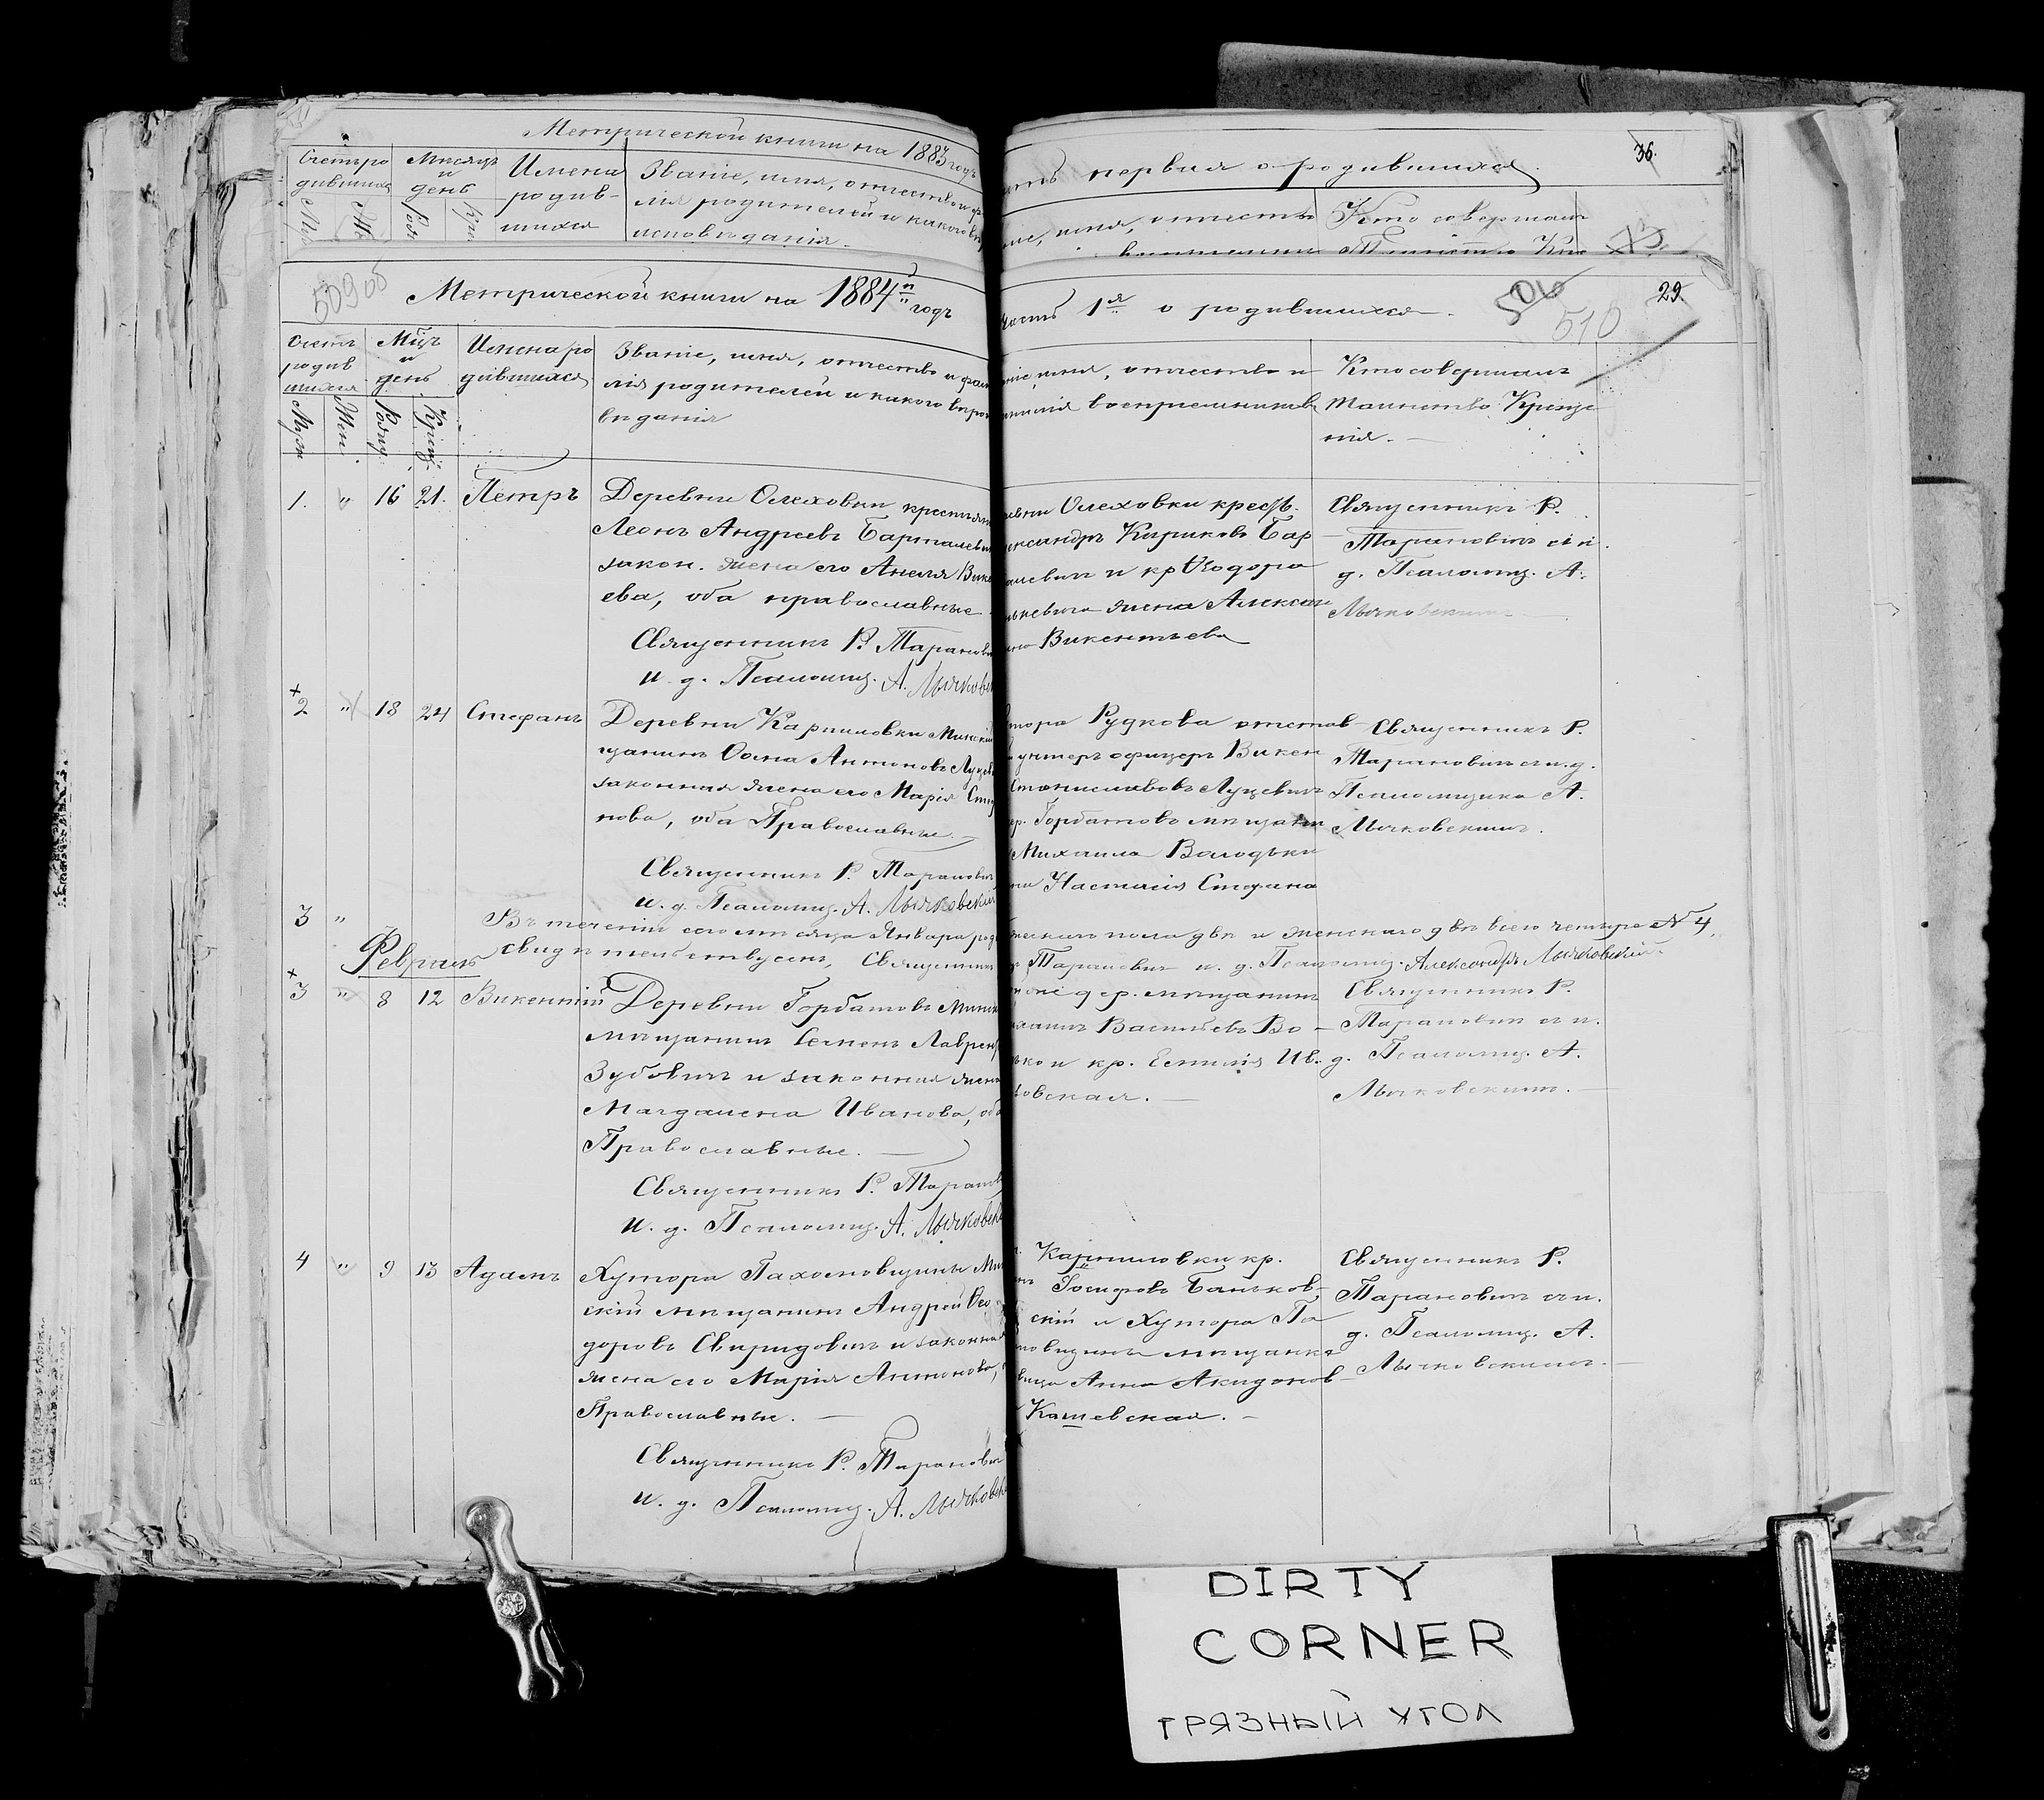 Метрической книги на 1883 годъ
первая о родившихся.
36.
Счетъ ро
дившихся
Мѣсяцъ
и
день
Имена
родив-
шихся
Званіе, имя, отчество и
лія родителей и какого
исповѣданія.
имя, отчество
Кто совершалъ
50906
Метрической книги на 1884й годъ
Часть 1я о родившихся.
506
510
29.
Счетъ
родив
шихся
Мцъ
и
день
Имена ро
дившихся
Званіе, имя, отчество и фам
лія родителей и какого вѣро
вѣданія
имя, отчество и
воспріемниковъ
Кто совершалъ
таинство Креще
нія.
Муж
Жен.
Рожд.
Крещ.
1. " 16 21. Петръ
Деревни Олеховки крестьян
Леонъ Андреевъ Барташеви
закон. жена его Анеля Вике
ева, оба православные
Священникъ Р. Таранови
и. д. Псаломщ. А. Лычковск
Олеховки крест.
Кириковъ Бар
и кр Ѳеодора
жена Алексан
Викентьева
Священникъ Р.
Тарановичъ съ и.
д. Псаломщ. А.
Лычковскимъ
2 " 18 24 Стефанъ
Деревни Карпиловки Минскій
щанинъ Осипъ Антоновъ Луцев
законная жена его Марія Сте
нова, оба Православные.
Священникъ Р. Тарановичъ
и. д. Псаломщ. А. Лычковскій
тора Рудкова отстав
унтеръ офицеръ Викен
Станиславовъ Луцевичъ
ер. Горбатовъ мѣщани
Михаила Володьки
Настасія Стефана
Священникъ Р.
Тарановичъ съ и. д.
Псаломщика А.
Лычковскимъ.
3 "
Въ теченіи сего мѣсяца Января род
жескаго пола два и женскаго два всего четыре № 4.
свидѣтельствуемъ, Священник
Тарановичъ и. д. Псаломщ. Александръ Лычковскій.
Февраль
3 " 8 12 Викентій
Деревни Горбатовъ Минск
мѣщанинъ Семенъ Лаврент
Зубовичъ и законная жена
Магдалена Иванова, оба
Православные.
Священникъ Р. Таранов
и. д. Псаломщ. А. Лычковск
дер. мѣщанинъ
Васильевъ Во-
ько и кр. Емилія Ив.
ковская.
Священникъ Р.
Тарановичъ съ и.
д. Псаломщ. А.
Лычковскимъ.
4 " 9 13 Адамъ
Хутора Пахомовщины Мин
скій мѣщанинъ Андрей Ѳео
доровъ Свиридовичъ и законная
жена его Марія Антонова,
Православные.
Священникъ Р. Таранович
и. д. Псаломщ. А. Лычковск
Карпиловки кр.
Іосифовъ Баньков-
скій и Хутора Па
мовщины мѣщанка
вица Анна
Священникъ Р.
Тарановичъ съ и.
д. Псаломщ. А.
Лычковскимъ.
DIRTY
CORNER
ГРЯЗНЫЙ УГОЛ